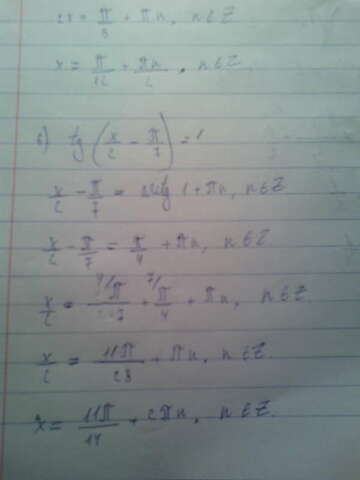 2x = π/3 + πn, n∈Z
x = π/12 + πn/2, n∈Z
tg (x/2 - π/7) = 1
x/2 - π/7 = arctg 1 + πn, n∈Z
x/2 - π/7 = π/4 + πn, n∈Z
x/2 = π/7 + π/4 + πn, n∈Z.
x/2 = 11π/28 + πn, n∈Z.
x = 11π/14 + 2πn, n∈Z.